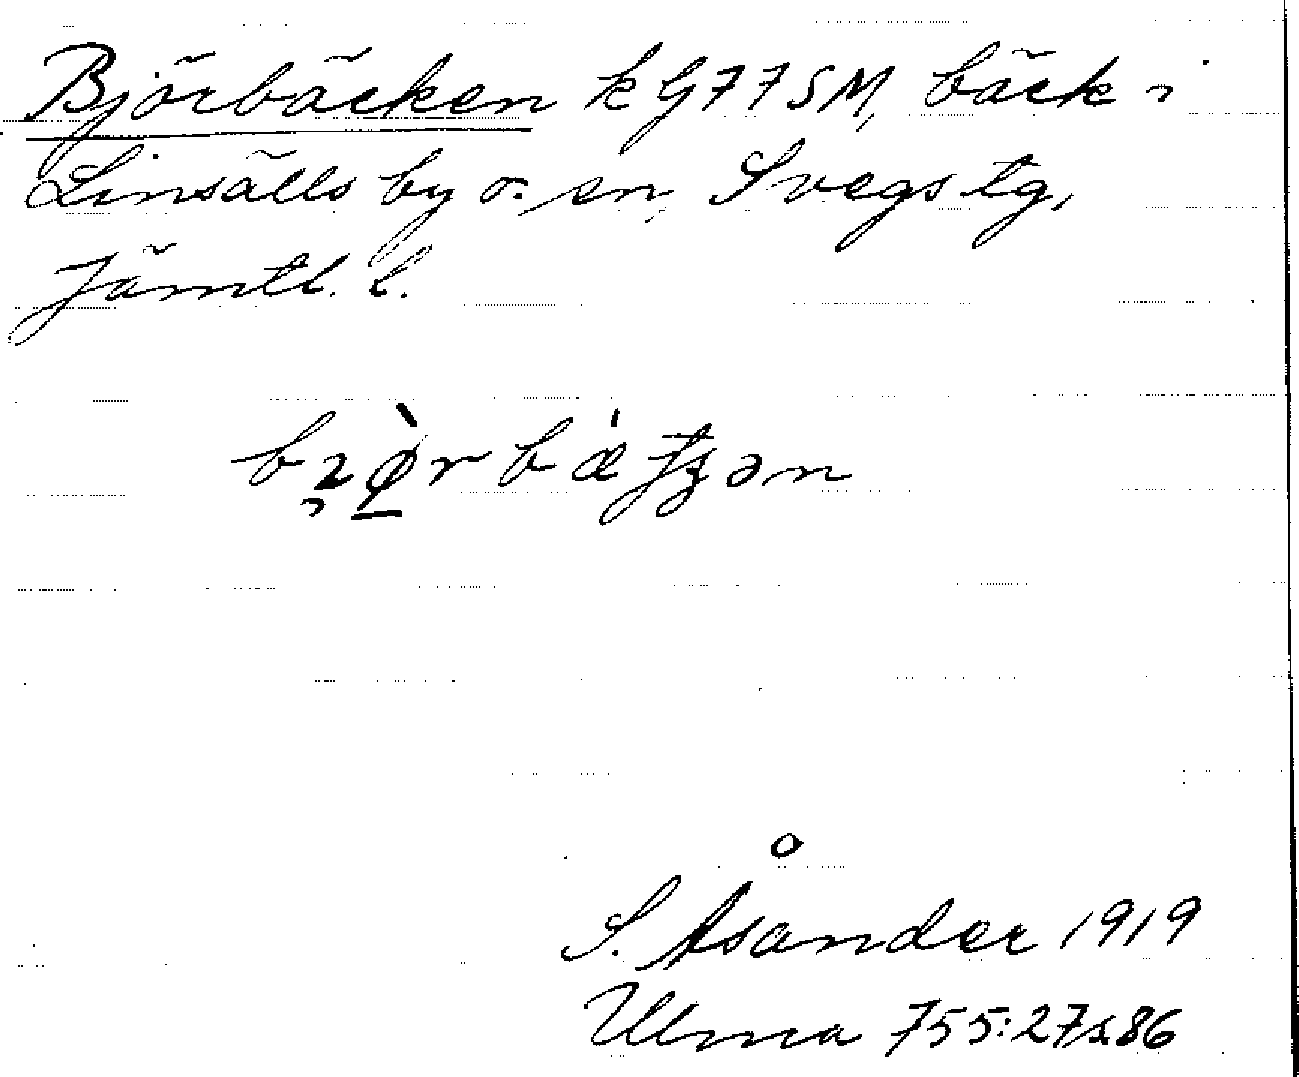 Björbäcken kG77SM, bäck i
Linsälls by o. sn, Svegs tg,
Jämtl. l.
bɿø̀rbǽꞓʒən
S. Åsander 1919
Ulma 755:27 s. 86